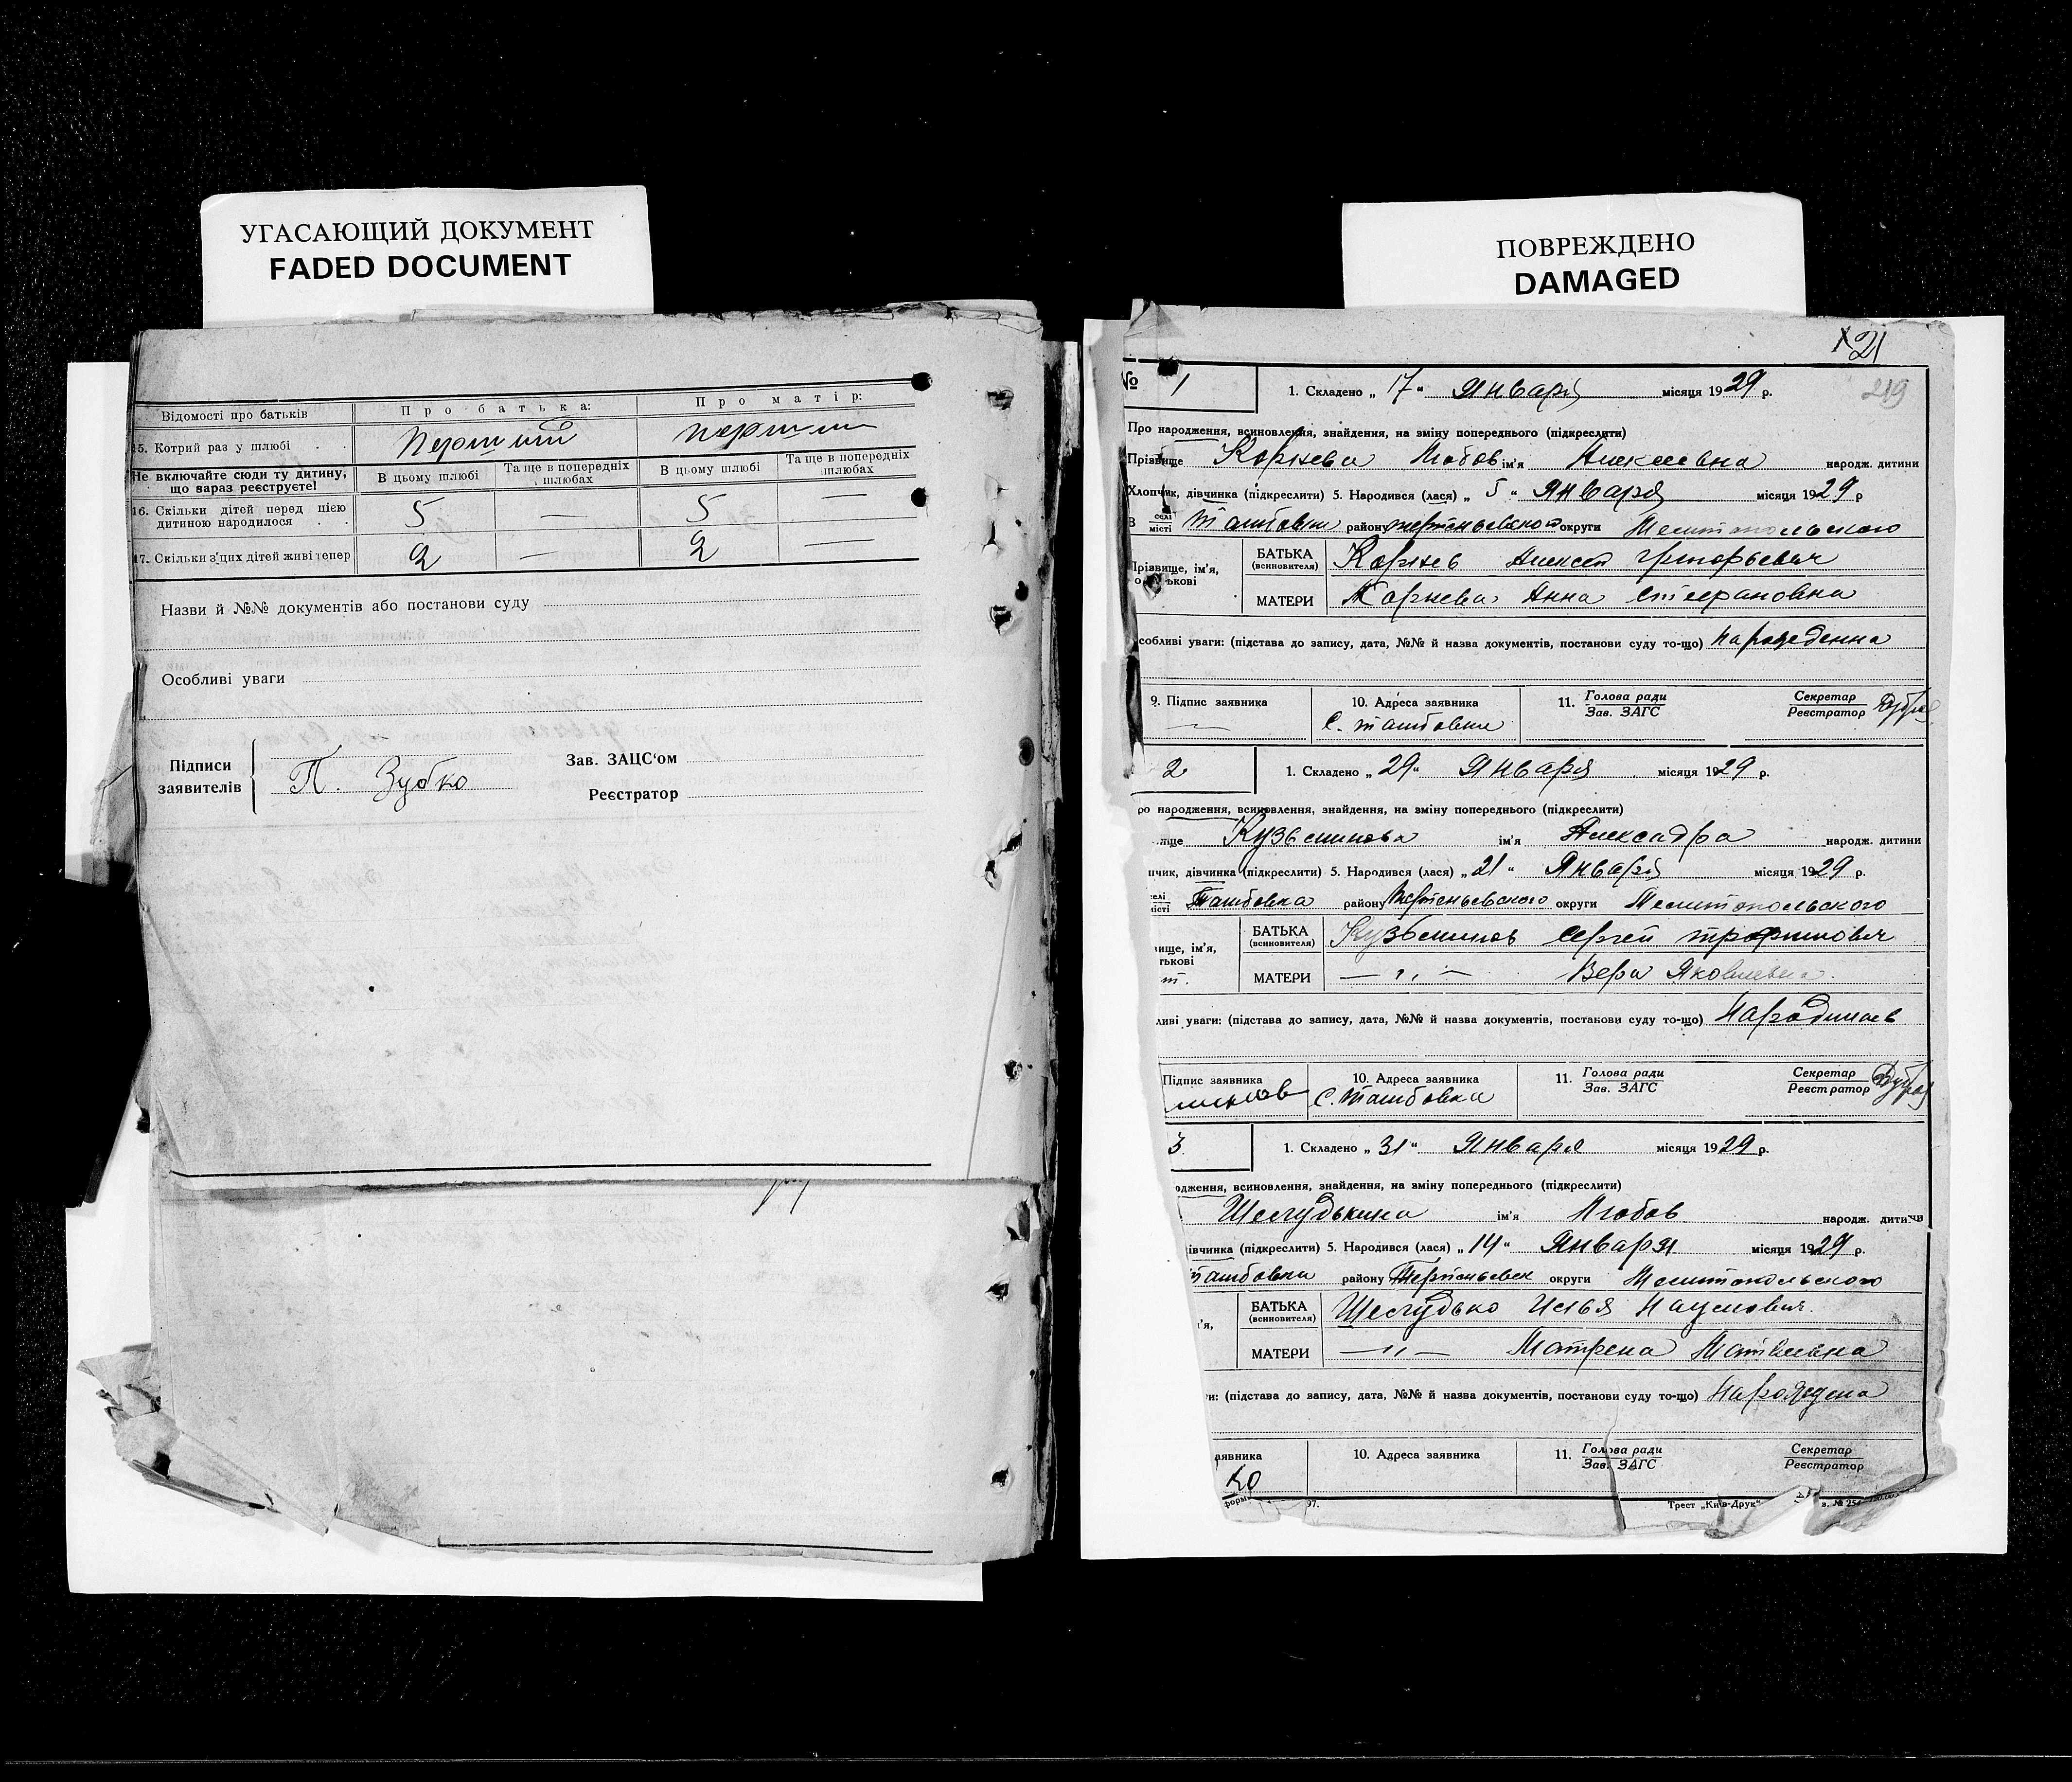 УГАСАЮЩИЙ ДОКУМЕНТ
FADED DOCUMENT
Відомості про батьків Про батька: Про матір:
15. Котрий раз у шлюбі перший перший
Не включайте сюди ту дитину, що зараз реєструєте! В цьому шлюбі Та ще в попередніх шлюбах В цьому шлюбі Та ще в попередніх шлюбах
16. Скільки дітей перед цією
дитиною народилося 5 — 5 —
17. Скільки з цих дітей живі тепер 2 — 2 —
Назви й №№ документів або постанови суду
Особливі уваги
Підписи
заявителів П. Зубко
Зав. ЗАЦС'ом
Реєстратор
ПОВРЕЖДЕНО
DAMAGED
21
219
№ 1 1. Складено „ 17 “ Января місяця 1929 р.
Про народження, всиновлення, знайдення, на зміну попереднього (підкреслити)
Прізвище Корнева Любов ім'я Алексеевна народж. дитини
Хлопчик, дівчинка (підкреслити) 5. Народився (лася) „ 5 “ Января місяця 1929 р
В селі місті району округи Мелитопольского
Прізвище, ім'я, БАТЬКА (всиновителя) Корнев Алексей Григорьевич
МАТЕРИ Корнева Анна Стефановна
собливі уваги: (підстава до запису, дата, №№ й назва документів, постанови суду то-що)
9. Підпис заявника — 10. Адреса заявника 11. Голова ради Зав. ЗАГС Секретар Реєстратор
С. Ташбовка
2 1. Складено „ 29 “ Января місяця 1929 р.
ро народження, всиновлення, знайдення, на зміну попереднього (підкреслити)
Кузьминова ім'я Александра народж. дитини
пчик, дівчинка (підкреслити) 5. Народився (лася) „ 21 “ Января місяця 1929 р.
Ташбовка району округи Мелитопольского
ище, ім'я, БАТЬКА (всиновителя) Кузьминов Сергей Трофимович
МАТЕРИ — „ — Вера Яковлевна
ливі уваги: (підстава до запису, дата, №№ й назва документів, постанови суду то-що)
Підпис заявника 10. Адреса заявника 11. Голова ради Зав. ЗАГС Секретар Реєстратор
С. Ташбовка
3 1. Складено „ 31 “ Января місяця 1929 р.
одження, всиновлення, знайдення, на зміну попереднього (підкреслити)
ім'я Любов народж. дитини
івчинка (підкреслити) 5. Народився (лася) „ 14 “ Января місяця 1929 р.
ташбовка району округи Мелитопольского
БАТЬКА (всиновителя) Илья Наумович
МАТЕРИ — „ — Матрена
и: (підстава до запису, дата, №№ й назва документів, постанови суду то-що)
аявника 10. Адреса заявника 11. Голова ради Зав. ЗАГС Секретар Реєстратор
форм 97. Трест „Київ-Друк“